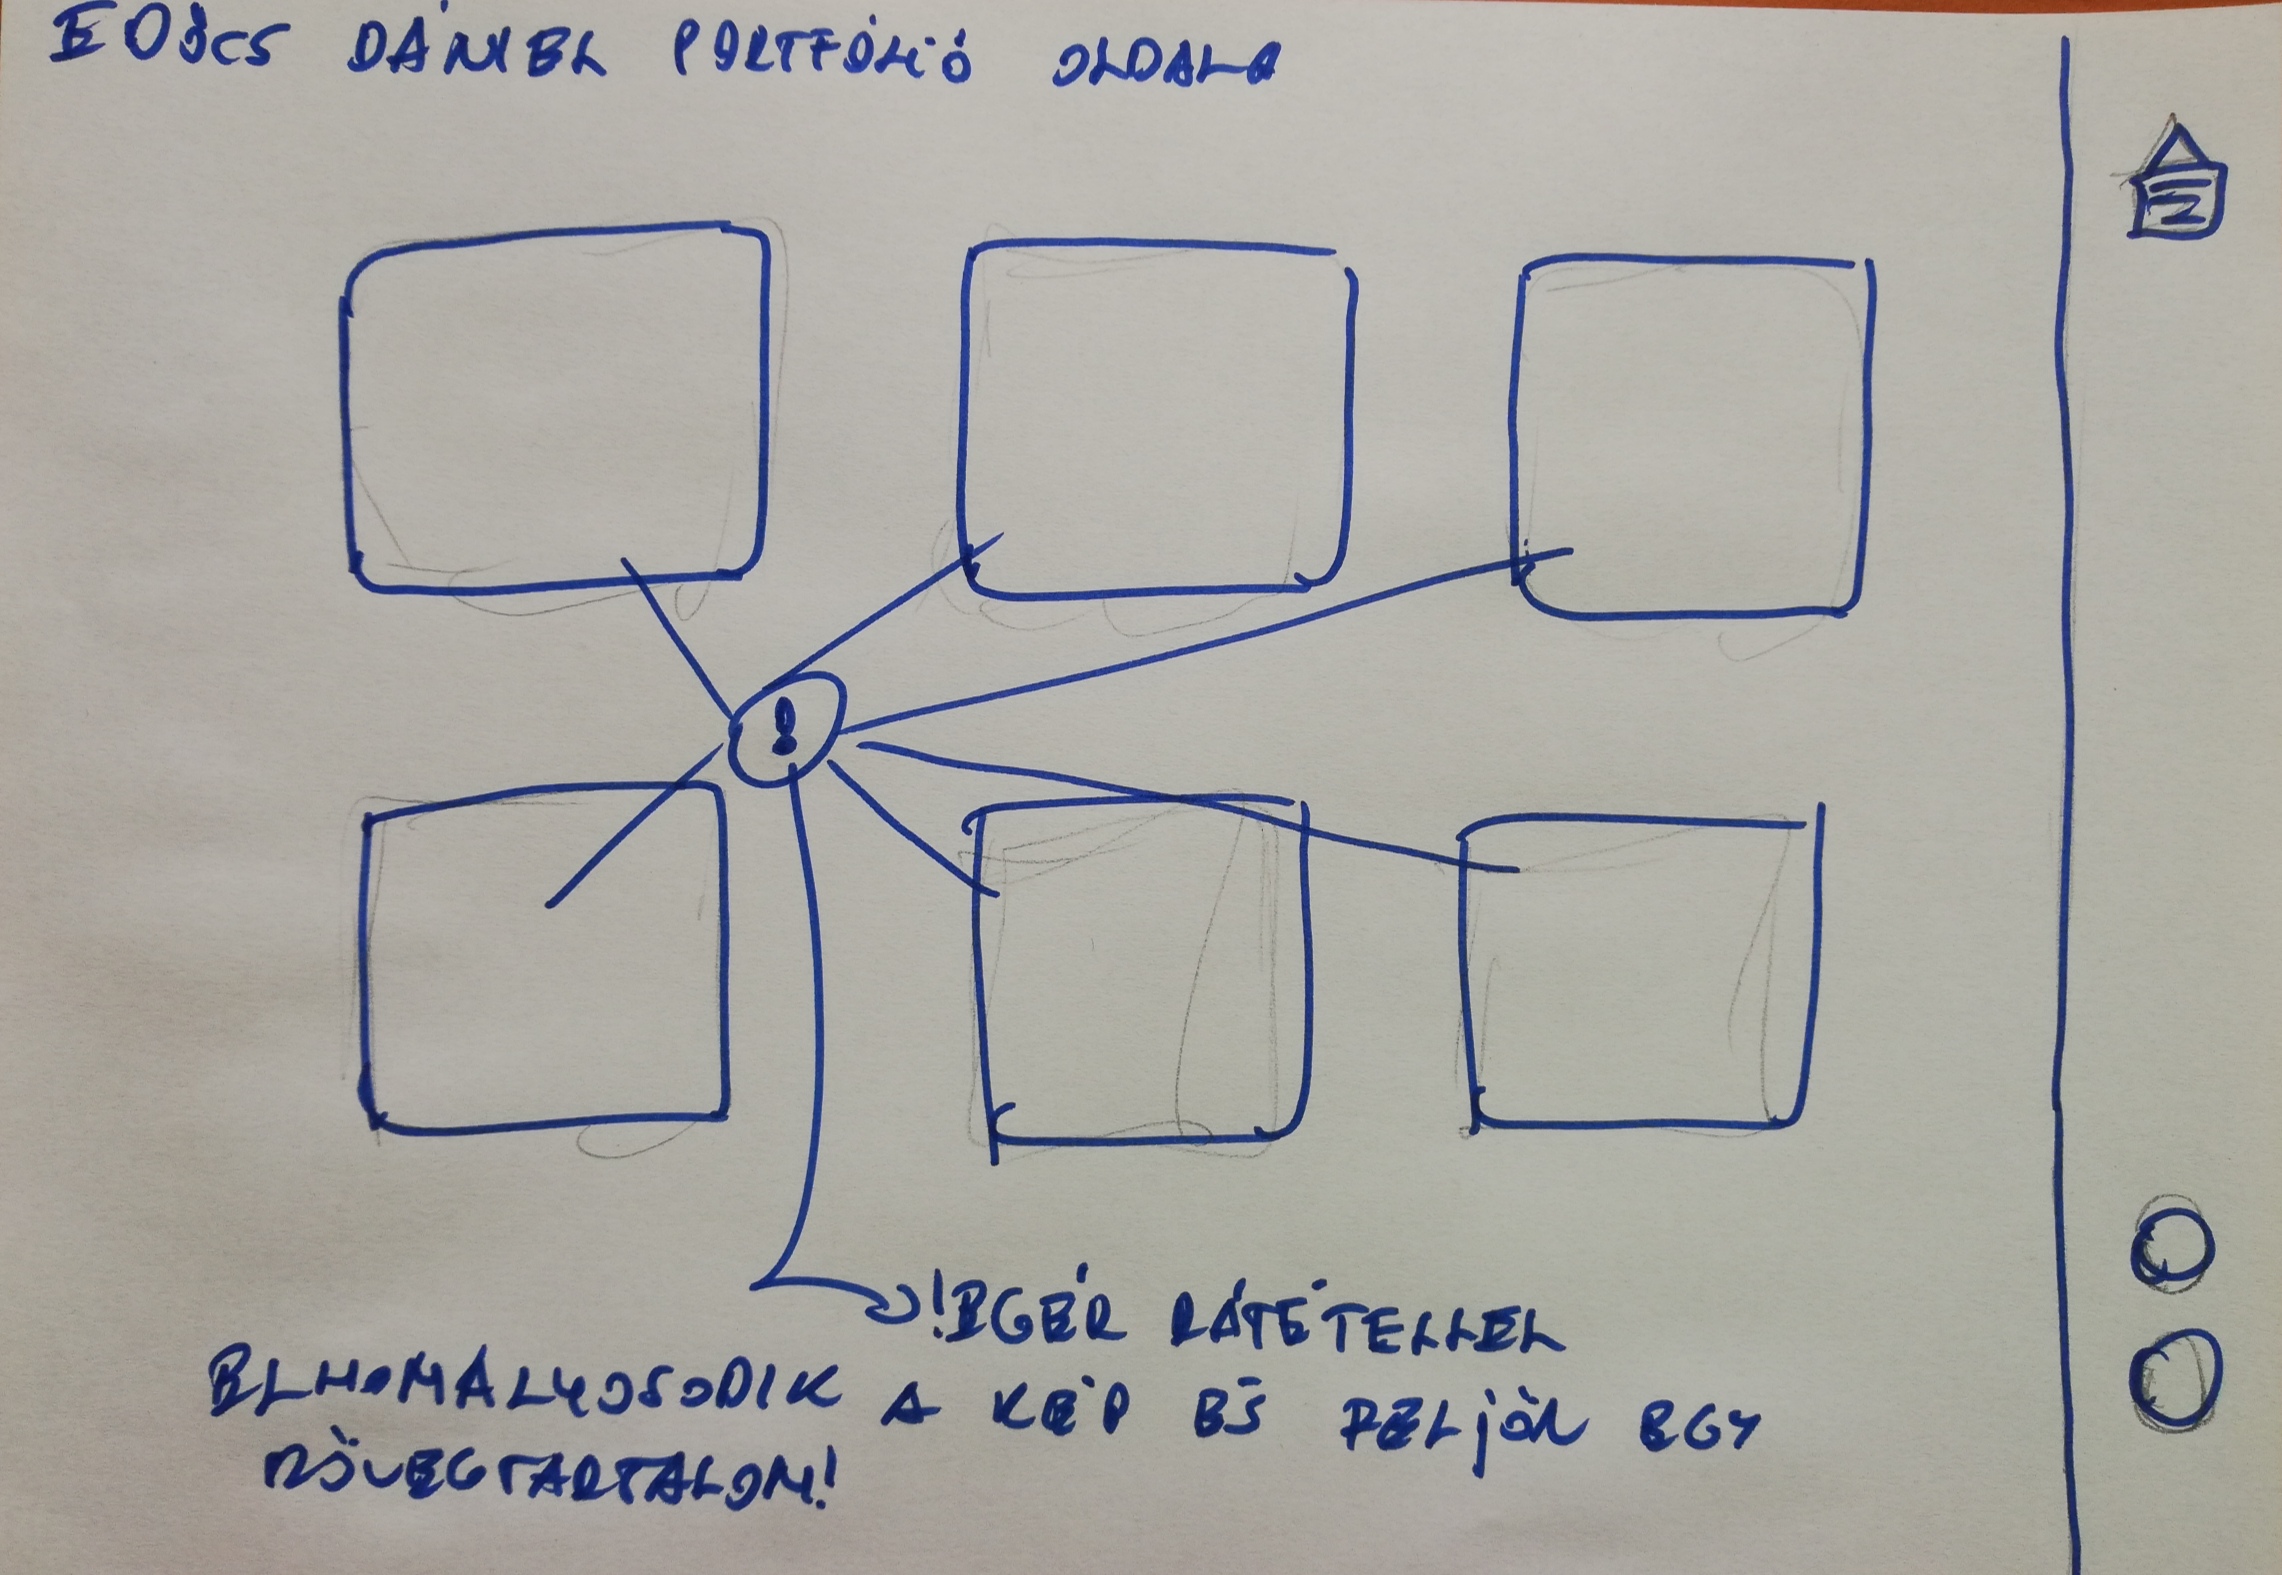 DÁNIEL PORTFÓLIÓ OLDALA
!
!EGÉR RÁTÉTELLEL
ELHOMÁLYOSODIK A KÉP ÉS FELJÖN EGY
SZÖVEGTARTALOM!